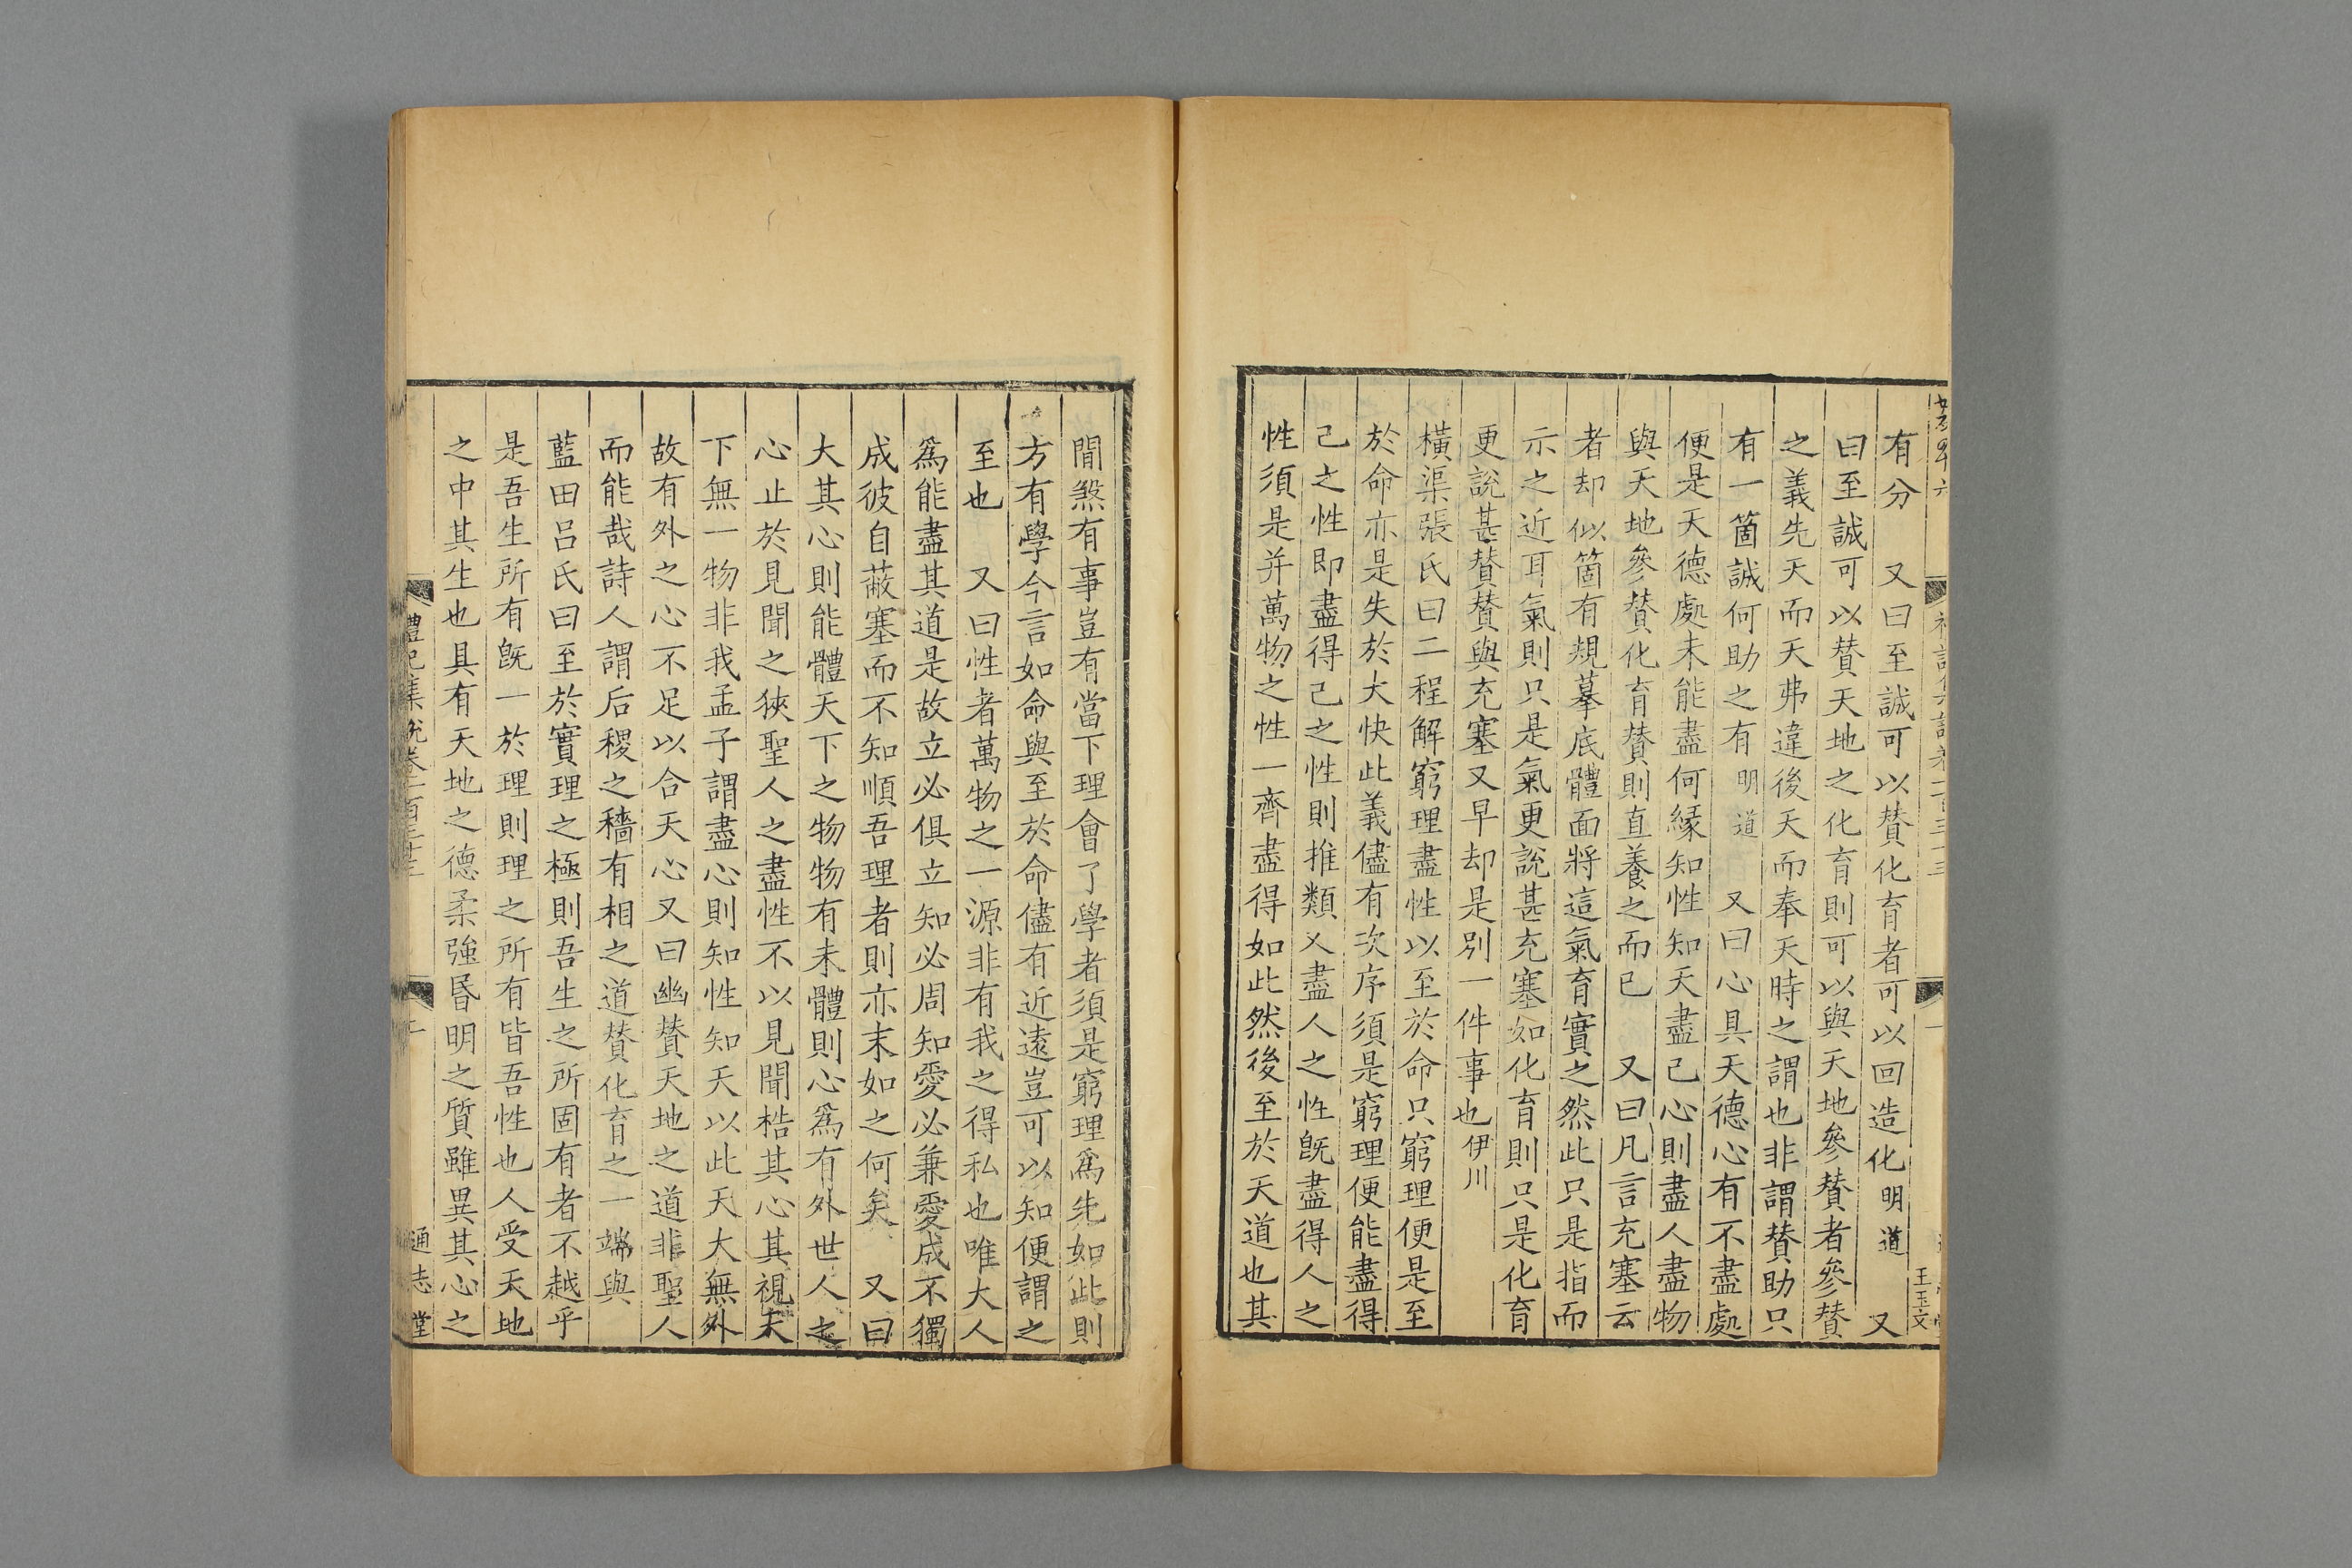 有分　又曰至誠可以贊化育者可以回造化明道　又
曰至誠可以贊天地之化育則可以與天地參贊者參贊
之義先天而天弗違後天而奉天時之謂也非謂贊助只
有一箇誠何助之有明道　又曰心具天德心有不盡處
便是天德處未能盡何緣知性知天盡己心則盡人盡物
與天地參贊化育贊則直養之而已　又曰凡言充塞云
者却似箇有規摹底體面將這氣育實之然此只是指而
示之近耳氣則只是氣更說甚充塞如化育則只是化育
更說甚贊贊與充塞又早却是別一件事也伊川
橫渠張氏曰二程解窮理盡性以至於命只窮理便是至
於命亦是失於大快此義儘有次序須是窮理便能盡得
己之性即盡得己之性則推類又盡人之性旣盡得人之
性須是并萬物之性一齊盡得如此然後至於天道也其
王玉文
閒煞有事豈有當下理會了學者須是窮理爲先如此則
方有學今言如命與至於命儘有近遠豈可以知便謂之
至也　又曰性者萬物之一源非有我之得私也唯大人
爲能盡其道是故立必俱立知必周知愛必兼愛成不獨
成彼自蔽塞而不知順吾理者則亦末如之何矣　又曰
大其心則能體天下之物物有未體則心爲有外世人之
心止於見聞之狹聖人之盡性不以見聞梏其心其視天
下無一物非我孟子謂盡心則知性知天以此天大無外
故有外之心不足以合天心又曰幽贊天地之道非聖人
而能哉詩人謂后稷之穡有相之道贊化育之一端與
藍田呂氏曰至於實理之極則吾生之所固有者不越乎
是吾生所有旣一於理則理之所有皆吾性也人受天地
之中其生也具有天地之德柔強昏明之質雖異其心之
禮記集說卷一百三十三
二
通志堂